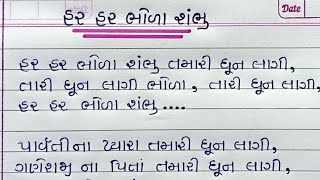 હર હર ભોળા શંભુ
Date
હર હર ભોળા શંભુ તમારી ધૂન લાગી,
તારી ધૂન લાગી ભોળા, તારી ધૂન લાગી,
હર હર ભોળા શંભુ ....
પાર્વતીના પ્યારા તમારી ધૂન લાગી,
ગણેશજી ના પિતા તમારી ધૂન લાગી,